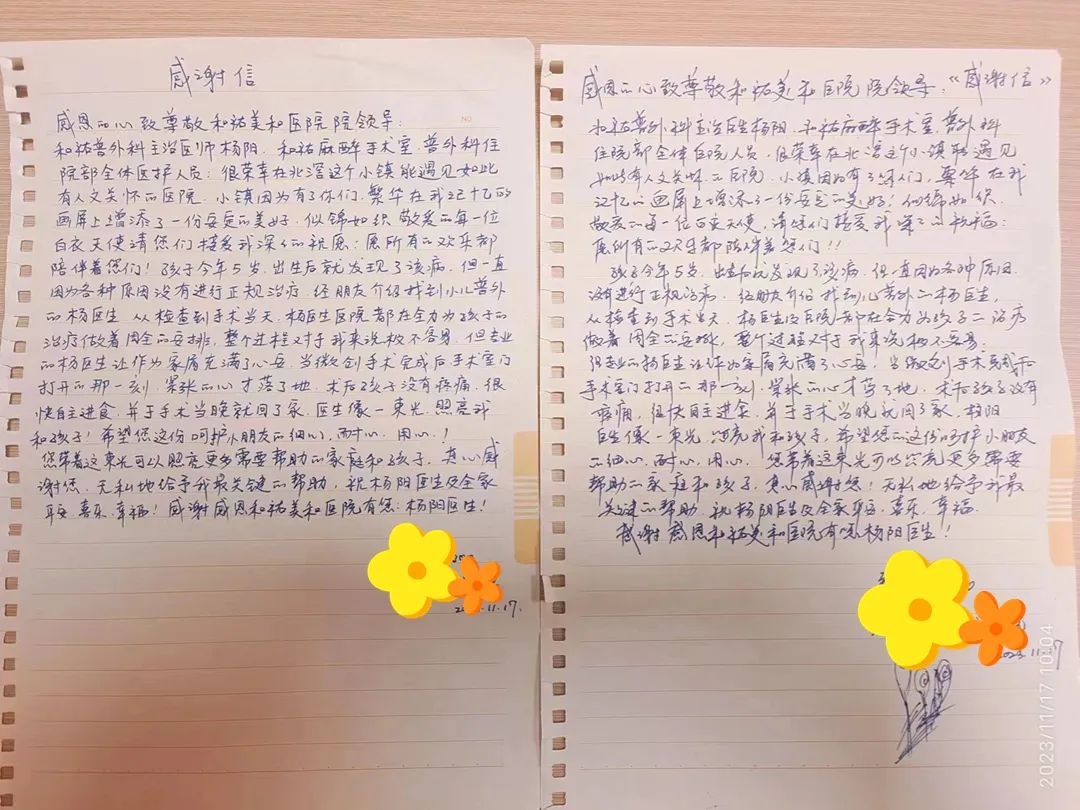 感谢信
感恩的心致尊敬和祐美和医院院领导:
和祐普外科主治医师杨阳、和祐麻醉手术室、普外科住
院部全体医护人员:很荣幸在北滘这个小镇能遇见如此
有人文关怀的医院、小镇因为有了你们、繁华在我记忆的
画屏上增添了一份安定的美好、似锦如织、敬爱的每一位
白衣天使请您们接受我深深的祝愿:愿所有的欢乐都
陪伴着您们!孩子今年5岁、出生后就发现了该病、但一直
因为各种原因没有进行正规治疗、经朋友介绍找到小儿普外
的杨医生、从检查到手术当天、杨医生医院都在全力为孩子的
治疗做着周全的安排,整个过程对于我来说极不容易、但专业
的杨医生让作为家属充满了心安、当微创手术完成后手术室门
打开的那一刻、紧张的心才落了地、术后孩子没有疼痛、很
快自主进食、并于手术当晚就回了家、医生像一束光、照亮我
和孩子!希望您这份呵护小朋友的细心、耐心、用心、!
您带着这束光可以照亮更多需要帮助的家庭和孩子、真心感
谢您、无私地给予我最关键的帮助、祝杨阳医生及全家
平安、喜乐、幸福!感谢感恩和祐美和医院有您:杨阳医生!
11.17.
感恩的心致尊敬和祐美和医院院领导:《感谢信》
和祐普外科主治医生杨阳、和祐麻醉手术室、普外科
住院部全体医院人员、很荣幸在北滘这个小镇能遇见
如此有人文关怀的医院、小镇因为有了你们、繁华在我
记忆的画屏上增添了一份安定的美好!似锦如织、
敬爱的每一位白衣天使、请您们接受我深深的祝福:
愿所有的欢乐都陪伴着您们!!
孩子今年5岁、出生后就发现了该病、但一直因为各种原因
没有进行正规治病、经朋友介绍找到儿普外的杨医生,
从检查到手术当天、杨医生及医院都在全力为孩子的治疗
做着周全的安排,整个过程对于我来说极不容易、
但专业的杨医生让作为家属充满了心安、当微创手术完成后
手术室门打开的那一刻、紧张的心才落了地、术后孩子没有
疼痛,很快自主进食、并于手术当晚就回了家、杨阳
医生像一束光、照亮我和孩子、希望您的这份呵护小朋友
的细心、耐心、用心、您带着这束光可以照亮更多需要
帮助的家庭和孩子、真心感谢您!无私地给予我最
关键的帮助、祝杨阳医生及全家平安、喜乐、幸福、
感谢感恩和祐美和医院有您杨阳医生!
2023.11.17
2023/11/17 10:04